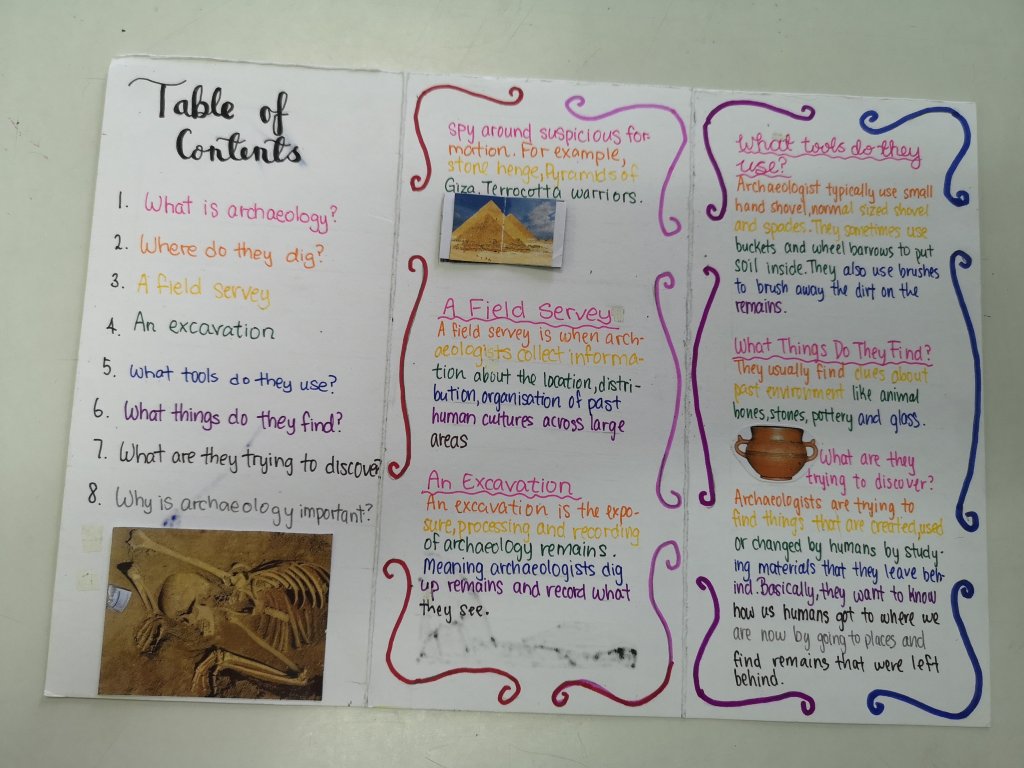 Table of
Contents
1. What is archaeology?
2. Where do they dig?
3. A field servey
4. An excavation
5. What tools do they use?
6. What things do they find?
7. What are they trying to discover?
8. Why is archaeology important?
spy around suspicious for
mation. For example,
stone henge, Pyramids of
Giza, Terrocotta warriors.
A Field Servey
A field servey is when arch-
aeologists collect informa-
tion about the location, distri-
bution, organisation of past
human cultures across large
areas
An Excavation
An excavation is the expo-
sure, processing and recording
of archaeology remains.
Meaning archaeologists dig
up remains and record what
they see.
What tools do they
use?
Archaeologist typically use small
hand shovel, normal sized shovel
and spades. They sometimes use
buckets and wheel barrows to put
soil inside. They also use brushes
to brush away the dirt on the
remains.
What Things Do They Find?
They usually find clues about
past enviroment like animal
bones, stones, pottery and glass.
What are they
trying to discover?
Archaeologists are trying to
find things that are created, used
or changed by humans by study-
ing materials that they leave beh-
ind. Basically, they want to know
how us humans got to where we
are now by going to places and
find remains that were left
behind.